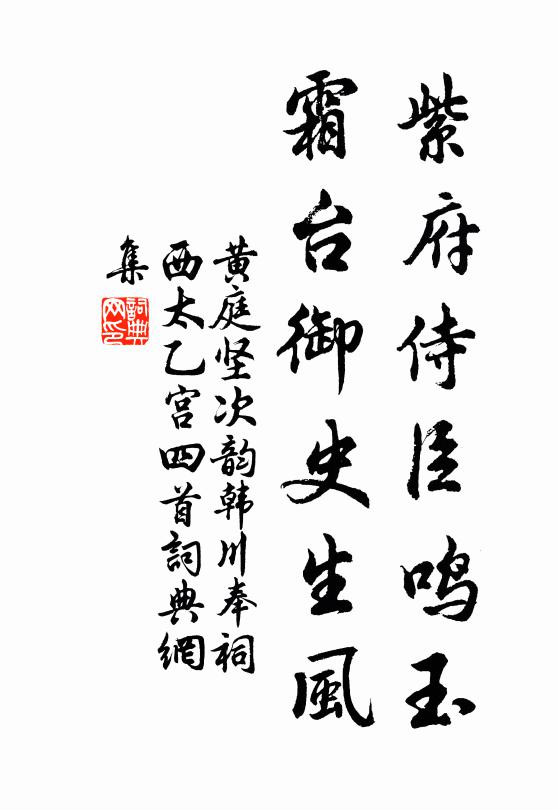 紫府侍臣鸣玉
霜台御史生風
黄庭坚次韵韩川奉祠
西太乙宫四首詞典網
集
詞典
网印